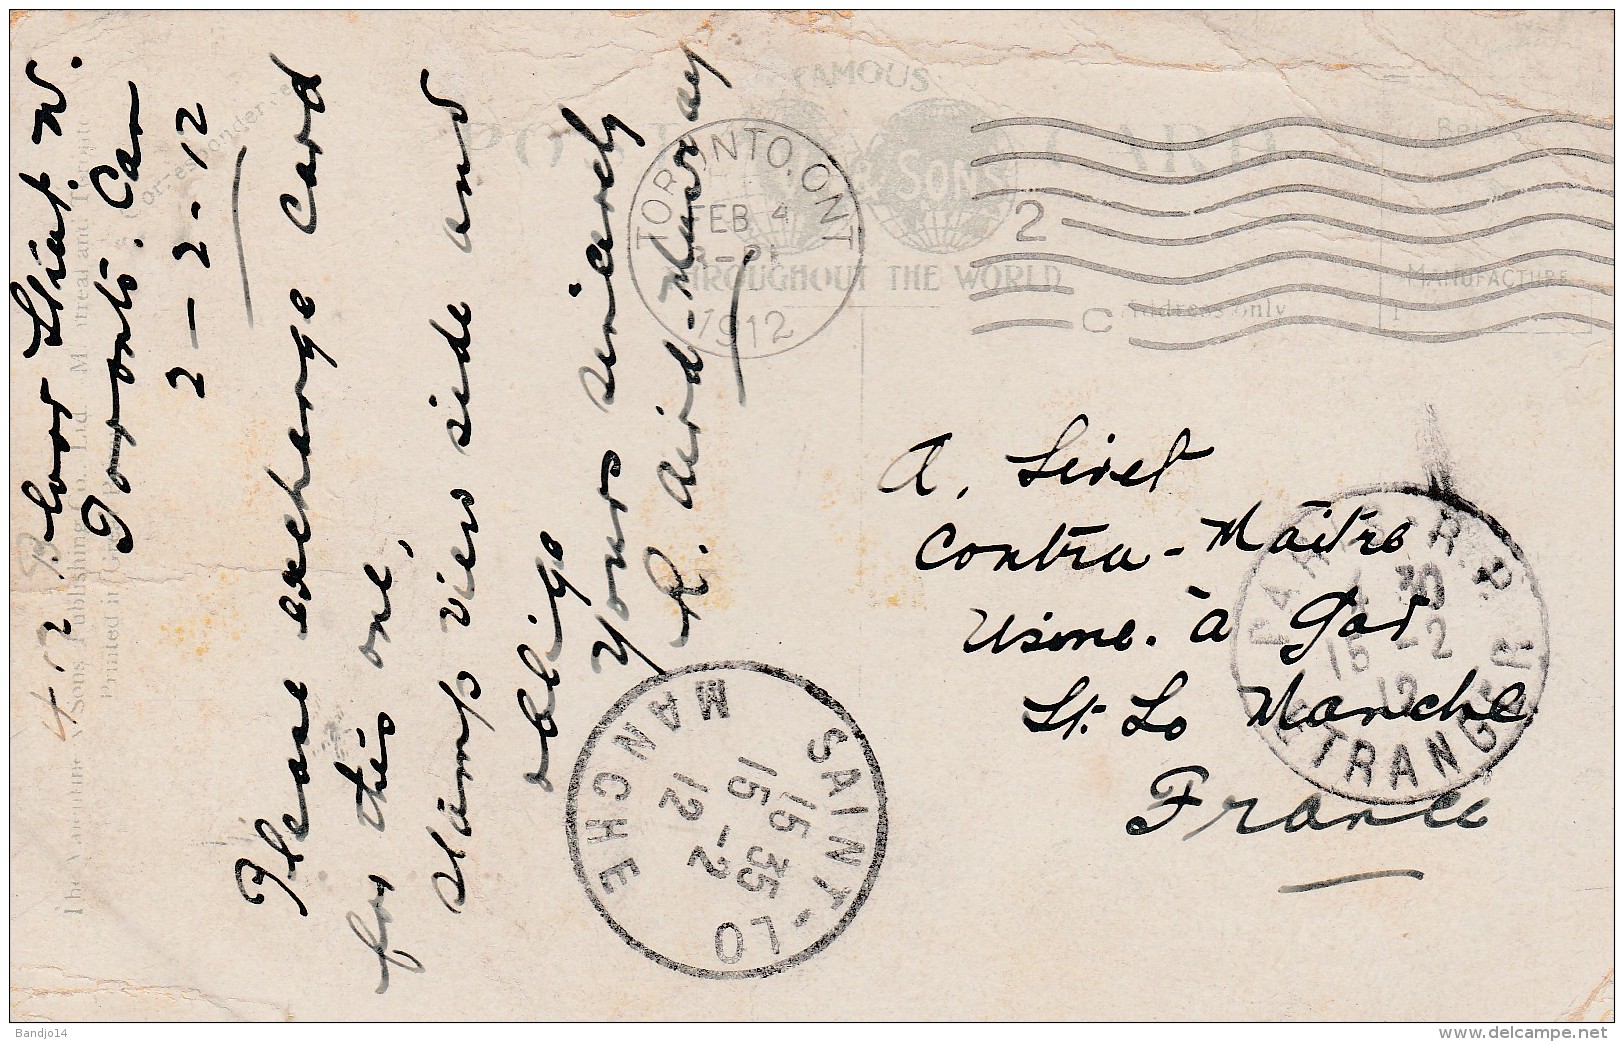 412 Bloor Street W.
Toronto. Can
2-2-12
Please exchange Card
for this one,
stamp view side and
oblige
Yours sincerely
R. Aird-Murray
A. Livet
Contra-Maître
Usine. à Gad
St. Lo Manche
France
FAMOUS
POST CARD
& SONS
THROUGHOUT THE WORLD
Address only
MANUFACTURE
Correspondence
The Valentine & Sons Publishing Co. Ltd. Montreal and Toronto
Printed in
TORONTO. ONT
FEB 4
1912
2
C
SAINT-LO
15 35
15 -2
12
MANCHE
PARIS
4 30
15 -2
12
ETRANGER
Bandjo14
www.delcampe.net